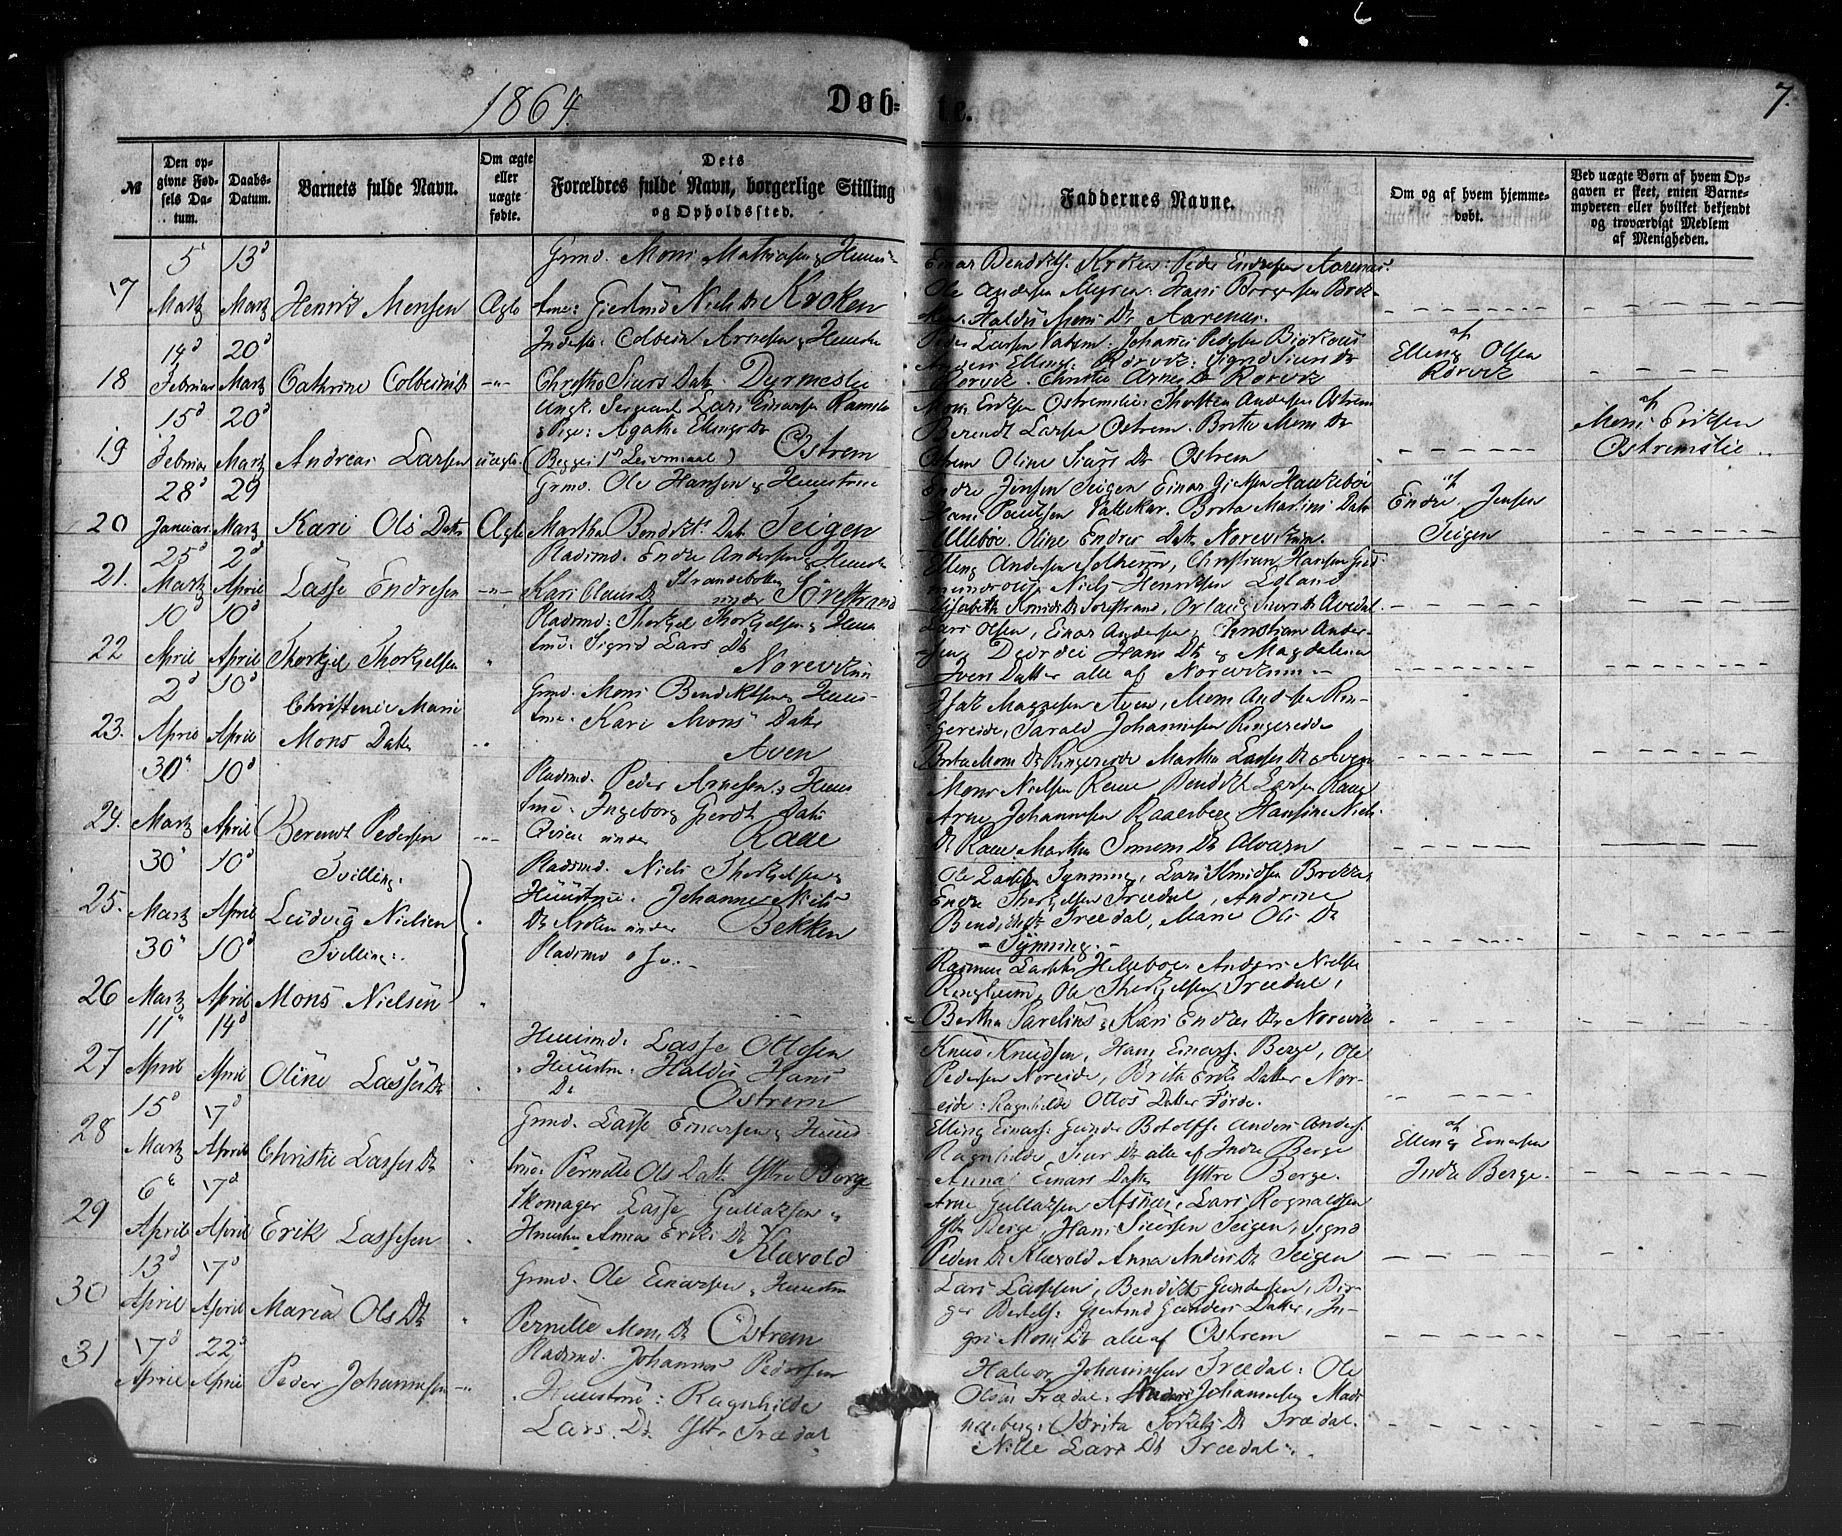 6
7.
1864.
Døb=
te.
№
Den op-
givne Fød-
sels Da-
tum.
Daabs-
Datum.
Barnets fulde Navn.
Om ægte
eller
uægte
fødte.
Dets
Forældres fulde Navn, borgerlige Stilling
og Opholdssted.
Faddernes Navne.
Om og af hvem hjemme-
døbt.
Ved uægte Børn af hvem Op-
gaven er skeet, enten Barne-
moderen eller hvilket bekjendt
og troværdigt Medlem
af Menigheden.
17
5 Martz
13d Martz
Henrik Monsen
Ægte
Grmd. Mons Mathiasen & Huus-
true: Giertrud Niels Dr Kroken
Ole Andersen Myren: Hans Borgersen
Haldis Mons Dr Aarenæs.
18
14d Februar
20d Martz
Cathrine Colbeins Dr
-"-
Inderst. Colbein Arnesen & Huustr
Christie Siurs Datr Dyrneslie
Peder Larsen Johannes Peders
Anders Ellings. Rørvik: Sigrid Siurs Dr
Rørvik. Christie Arnes Dr Rørvik
af
Elling Olsen
Rørvik
19
15d Februar
20d Martz
Andreas Larsen
uægte
Ungk. Sergeant Lars Einarsen
& Pige: Agathe Ellings Dr
(Begges 1ste Leiermaal) Ostrem
Mons Eriksen Ostremslie: Thorsten Andersen Ostrem
Berendt Larsen Ostrem. Brita Mons Dr
Ostrem Oline Siurs Dr Ostrem
af
Mons Eriksen
Ostremslie
20
28d Januar.
29 Martz
Kari Ols Datr
Ægte
Grmd. Ole Hansen & Huustrue
Martha Bendikts Datr Teigen
Endre Jensen Teigen Einar
Hans Brita Martins Datr
Oline Endres Datr Norevikum.
af
Endre Jensen
Teigen
21.
25d Martz
2d April
Lasse Endresen
-"-
Pladsmd. Endre Andersen & Huustr
Kari Claus Dr Strandebotten
under Sørestrand
Elling Andersen Solheim, Christian Hansen
Niels Henriksen
Elisabeth Knuds Dr Sørestrand,
22
10d April
10d April
Thorkjel Thorkjelsen
"
Pladsmd: Thorkjel Thorkjelsen & Huus
true: Sigrid Lars Dr
Norevikum
Lars Olsen, Einar Andersen, Christian Ander-
sen, Hans Dr & Magdalena
Iver Datter alle af Norevikum.
23.
2d April
10d April
Christense Marie
Mons Datr
Grmd. Mons Bendiktsen & Huus-
true. Kari Mons Datr
Aven
Magnesen Aven, Mons Andersen Rin-
gereide, Harald Johannesen Ringereide
Brita Mons Dr Ringereide Martha Lasses Dr Aven
24.
30" Martz
10d April
Berendt Pedersen
Pladsmd. Peder Arnesen & Huus
true. Ingeborg Gierdt Datr
under Raae
Mons Nielsen Raae Bendikt Larsen Raae
Arne Johannesen Hansine Niels.
Dr Raae Martha Simons Dr Alværn
25.
30" Martz
10d April
Tvilling.
Ludvig Nielsen
Pladsmd. Niels Thorkjelsen &
Huustrue. Johanne Niels
Dr Kroken under Bekken
Ole Larsen Synning, Lars Knudsen Brekke,
Endre Thorkjelsen Trædal, Andrine
Bendikts Trædal, Marie Ols Dr
- Synning. -
26
30" Martz
10d April
Tvilling.
Mons Nielsen
Pladsmd o. s. v.
Rasmus Larsen Anders Nielsen
Ole Thorkjelsen Trædal,
Bertha & Kari Endres Dr Norevik
27
11" April
14d April
Oline Lasses Dr
Huusmd. Lasse Ottosen
Huustrue Haldis Hans
Dr Ostrem
Knud Knudsen, Hans Einars. Berge, Ole
Pedersen Noreide, Brita Eriks Datter Nor-
eide: Ragnhilde Ottos Datter Førde.
28
15d Martz
17d April
Christie Lasses Dr
Grmd. Lasse Einarsen & Huus
true Pernille Ols Datt. Yttre Berge
Elling Einars. Gunder Botolfs. Anders Anders.
Ragnhilde Siur Dr alle af Indre Berge
Anna Einars Datter Yttre Berge.
af
Elling Einarsen
Indre Berge.
29
6" April
17d April
Erik Lassesen
Skomager Lasse Gullaksen &
Huustrue Anna Eriks Dr
Klævold
Arne Gullaksen Lars Rognaldsen
Yttre Berge, Hans Siursen Teigen, Sigrid
Peders Dr Klævold Anna Anders Dr Teigen
30
13d April
17d April
Maria Ols Dr
Grmd. Ole Einarsen, Huustrue
Pernille Mons Dr Ostrem
Lars Lassesen, Bendikt Gundersen, Bir-
ger Bertels. Giertrud Gunders Datter, In-
gri Mons Dr alle af Ostrem
31
17d April
22d April
Peder Johannesen
-"-
Pladsmd. Johannes Pedersen
Huustrue: Ragnhilde
Lars. Dr. Ytt. Trædal
Halvor Johannesen Trædal: Ole
Olsen Trædal. Anders Johannesen Mads-
neseberg: Brita Torkels Dr Trædal.
Nille Lars Dr Trædal.